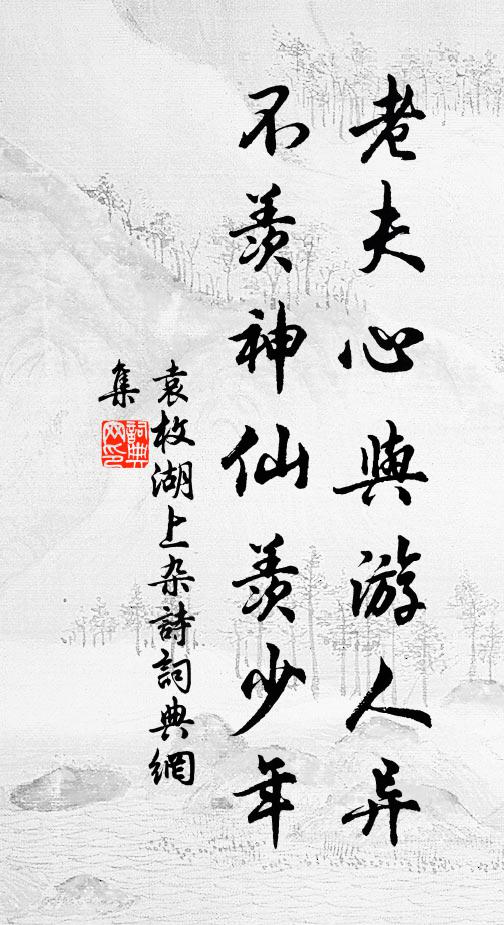 老夫心與游人异
不羨神仙羨少年
袁枚湖上杂詩詞典網
集
詞典網印